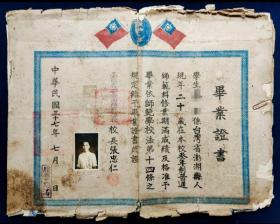 畢業證書
學生 係台灣省澎湖縣人
現年二十 歲在本校 普通
師範科修業期滿成績及格准予
畢業依師範學校法第十四條之
規定給予畢業證書此證
校長張忠仁
中華民國三十七年七月 日